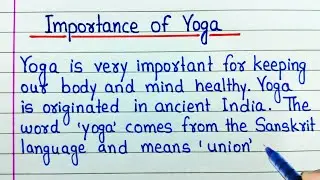 Importance of Yoga
Yoga is very important for keeping
our body and mind healthy. Yoga
is originated in ancient India. The
word 'yoga' comes from the Sanskrit
language and means 'union'